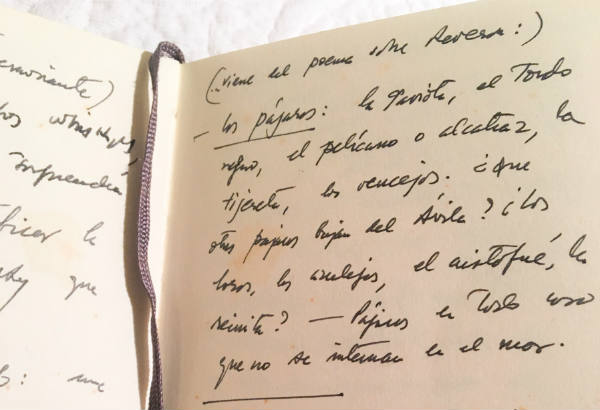 la
que
una
(..viene del poema sobre Reveron:)
— los pájaros: la gaviota, el Tordo
negro, el pelícano o alcatraz, la
tijereta, los vencejos. ¿Qué
otros pájaros bajan del Ávila? ¿Los
loros, los azulejos, el cristofué, la
reinita? — Pájaros en Todo caso
que no se internan en el mar.